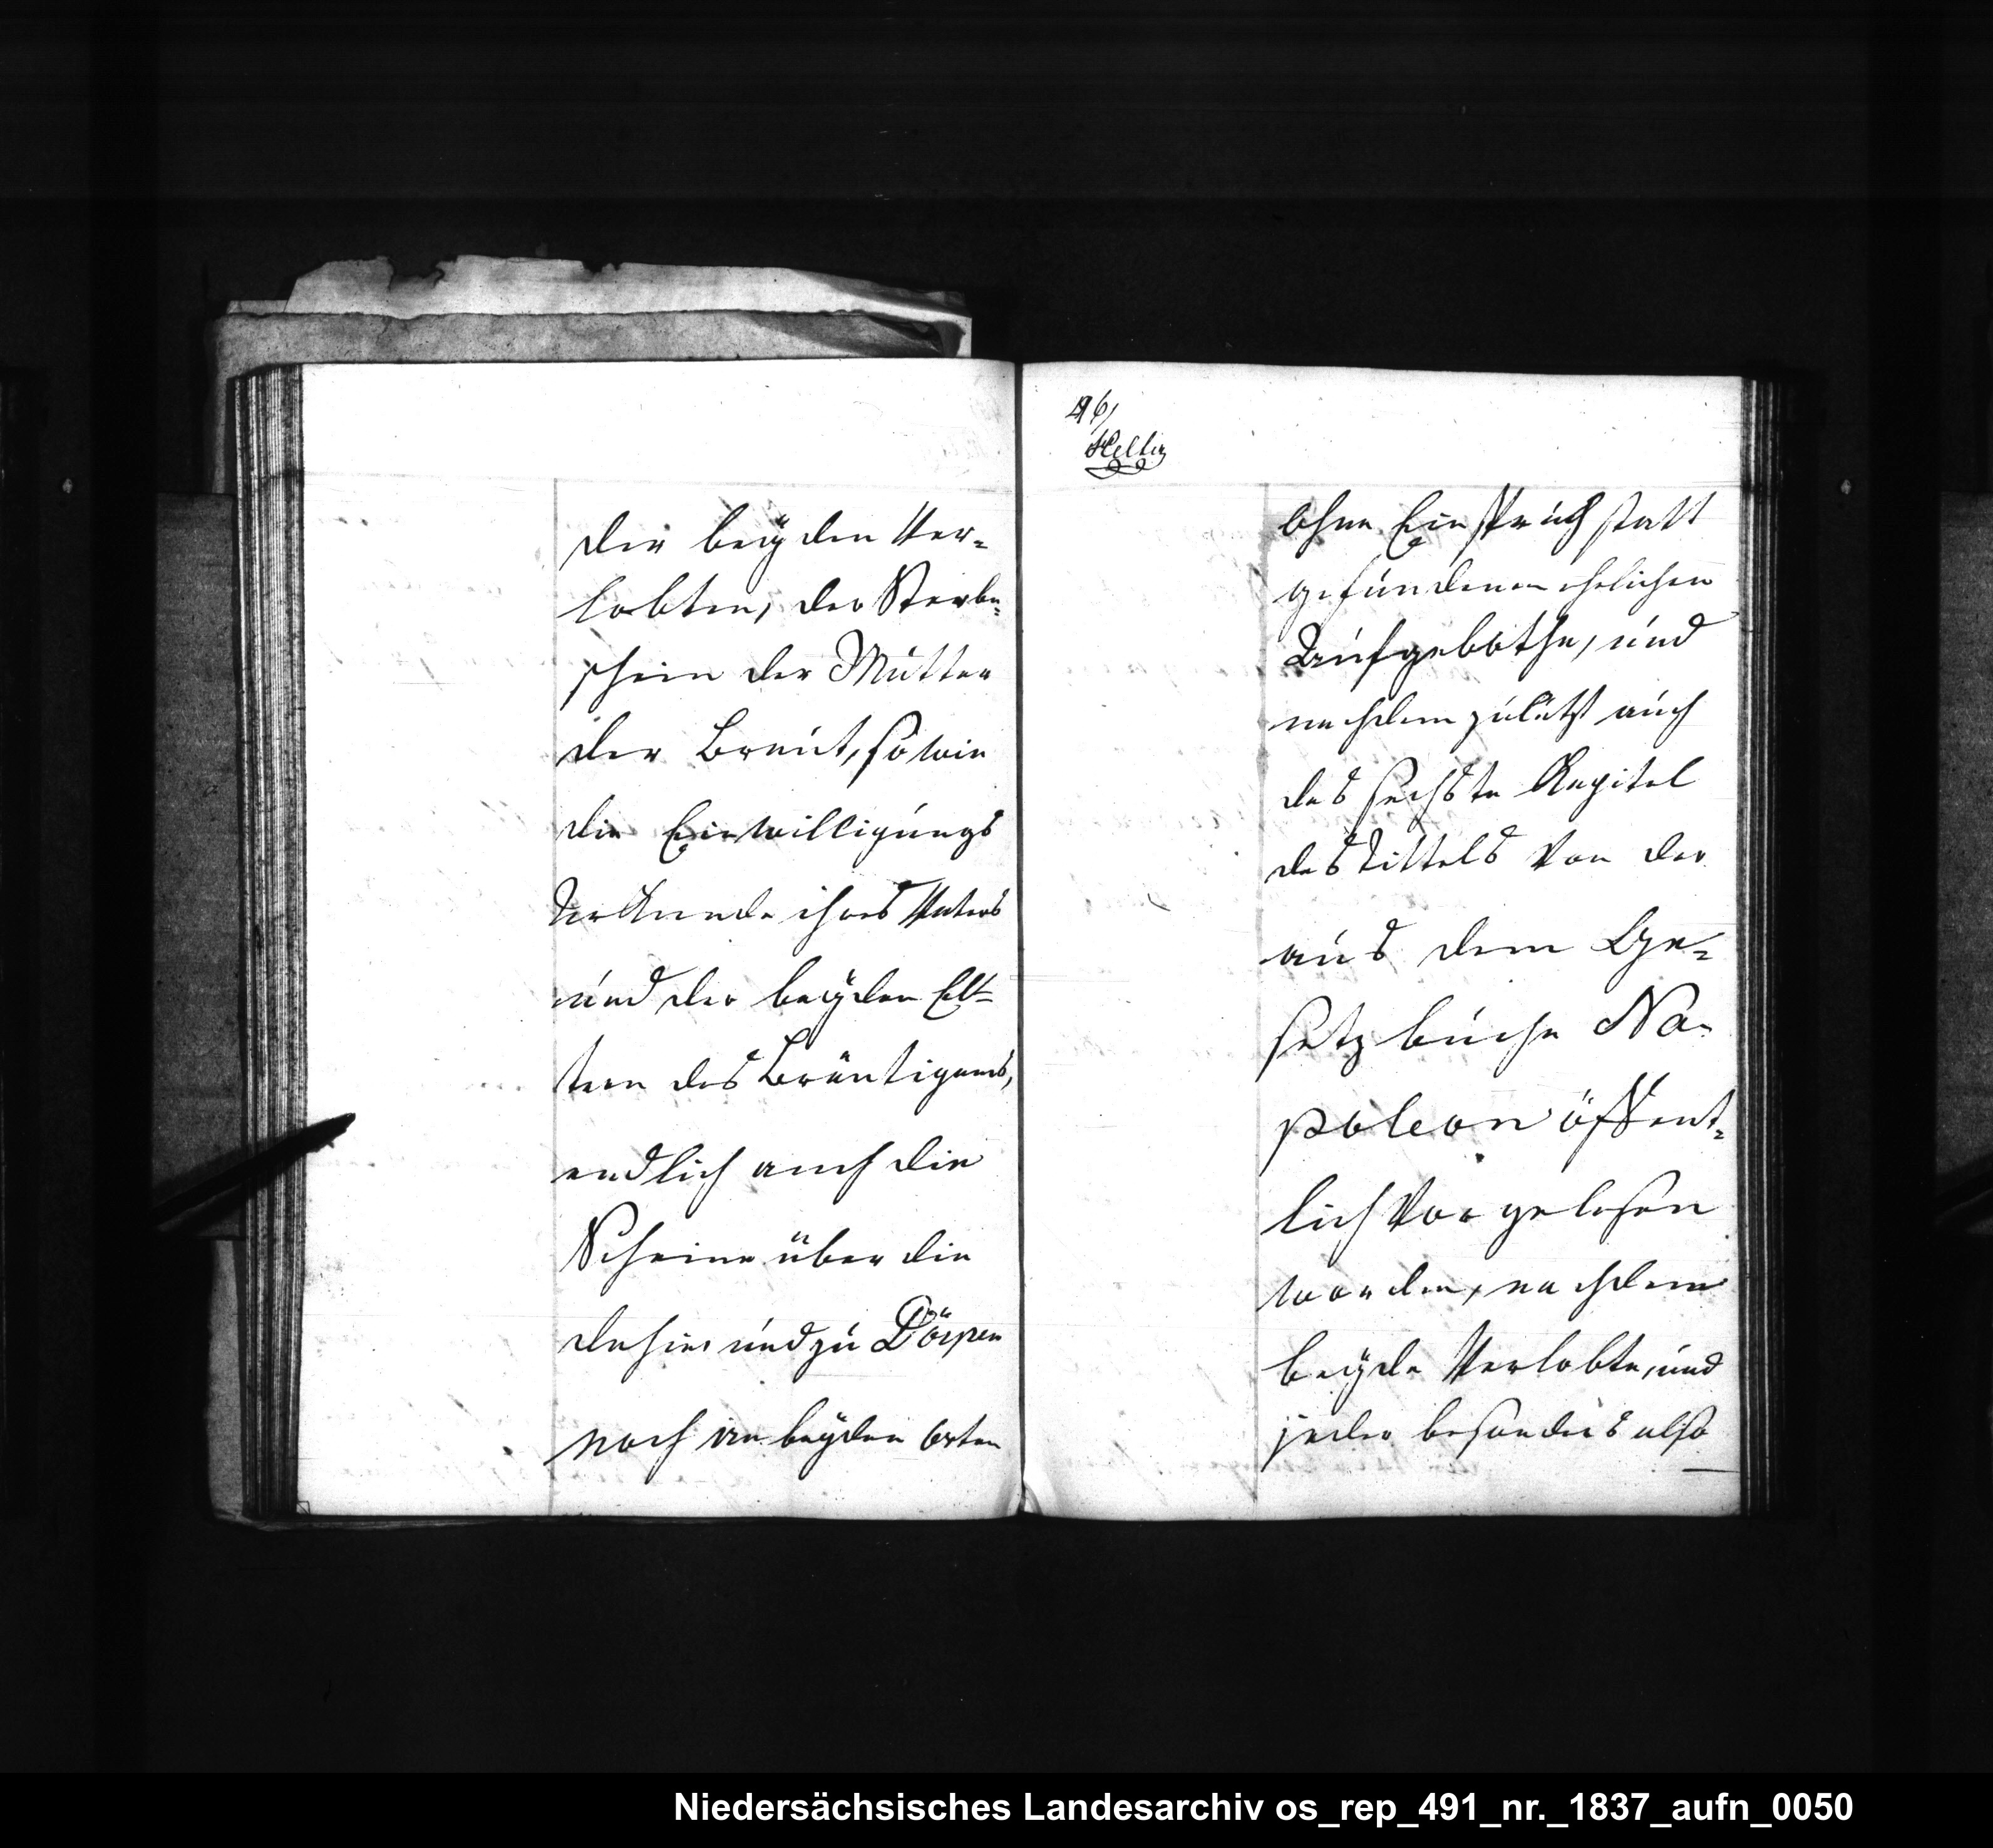 der beÿden Ver=
lobten, der Sterbe=
schein der Mutter
der Braut, so wie
die Einwilligungs
Urkunde ihres Vaters
und der beÿden El=
tern des Bräutigams,
endlich auch die
Scheine über die
dahier und zu Dörpen
nach an beÿden Orten
46,
ohne Einspruch statt
gefundenen ehelichen
Aufgebothe, und
nachdem zuletzt auch
das sechste Kapitel
des Tittels von der
aus dem Ge=
setzbuche Na=
poleon öffent=
lich vorgelesen
worden, nachdem
beÿde Verlobte, und
jeder besonders also
Niedersächsisches Landesarchiv os_rep_491_nr._1837_aufn_0050